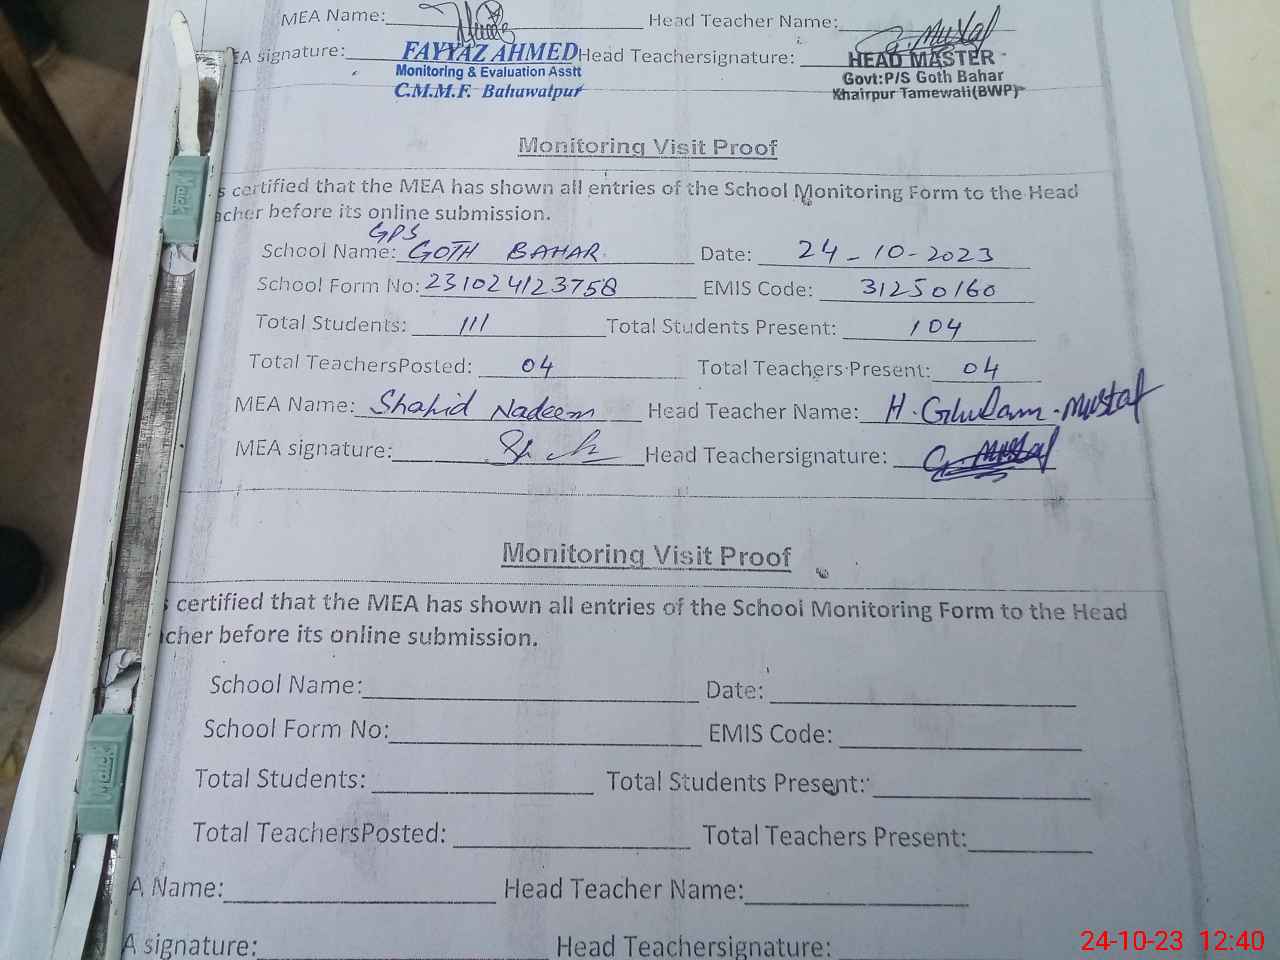 MEA Name: Head Teacher Name:
EA signature: FAYYAZ AHMED Head Teachersignature: G. Mustaf
HEAD MASTER
Monitoring & Evaluation Asstt Govt:P/S Goth Bahar
C.M.M.F. Bahawalpur Khairpur Tamewali(BWP)
Monitoring Visit Proof
s certified that the MEA has shown all entries of the School Monitoring Form to the Head
acher before its online submission.
GPS
School Name: GOTH BAHAR Date: 24-10-2023
School Form No: 231024123758 EMIS Code: 31250160
Total Students: 111 Total Students Present: 104
Total TeachersPosted: 04 Total Teachers Present: 04
MEA Name: Shahid Nadeem Head Teacher Name: H. Ghulam. Mustaf
MEA signature: Head Teachersignature: G. Mustaf
Monitoring Visit Proof
s certified that the MEA has shown all entries of the School Monitoring Form to the Head
acher before its online submission.
School Name: Date:
School Form No: EMIS Code:
Total Students: Total Students Present:
Total TeachersPosted: Total Teachers Present:
A Name: Head Teacher Name:
A signature: Head Teachersignature:
24-10-23 12:40